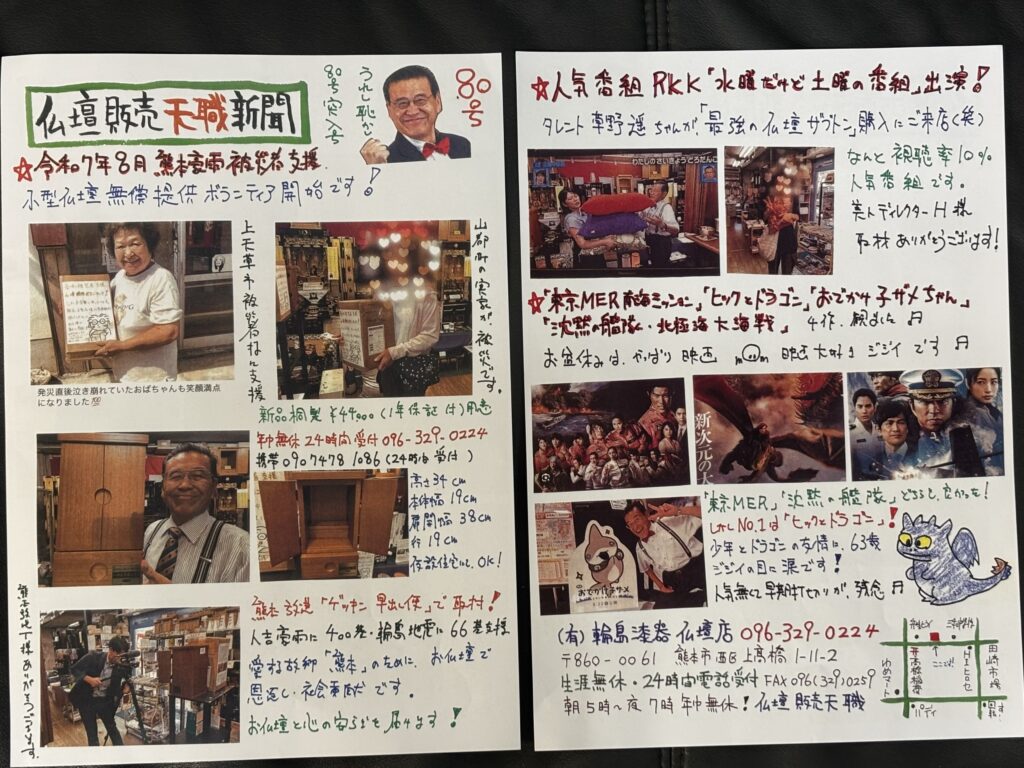 仏壇販売天職新聞
うれし恥かし
80号突入号
80号
☆令和7年8月 熊本豪雨被災者支援
小型仏壇無償提供ボランティア開始です!
上天草市被災者様に支援
山都町の実家が、被災です。
発災直後泣き崩れていたおばちゃんも笑顔満点
になりました💯
新品桐製 ¥44000(1年保証付)用意
年中無休24時間受付096-329-0224
携帯09074781086(24時間受付)
高さ34cm
本体幅19cm
扉開幅38cm
行19cm
仮設住宅に、OK!
熊本放送「ゲツキン早出し便」で取材!
人吉豪雨に400基・輪島地震に66基支援
愛する故郷「熊本」のために、お仏壇で
恩返し・社会貢献です。
お仏壇と心の安らぎを届けます!
様ありがとうございます。
☆人気番組RKK「水曜だけど土曜の番組」出演!
タレント草野遥ちゃんが、「最強の仏壇ザブトン」購入にご来店(笑)
わたしのさいきょうどろだんご
なんと視聴率10%
人気番組です。
美人ディレクターH様
取材ありがとうございます!
☆「東京MER南海ミッション」「ヒックとドラゴン」「おでかけ子ザメちゃん」
「沈黙の艦隊・北極海大海戦」4作、観ました♬
お盆休みは、やっぱり映画 映画大好きジジイです♬
新次元の大
「東京MER」「沈黙の艦隊」どちらも良かった!
しかしNo.1は「ヒックとドラゴン」!
少年とドラゴンの友情に、63歳
ジジイの目に涙です!
人気無くて早期打ち切りが、残念♬
おでかけ子ザメ
(有)輪島漆器仏壇店 096-329-0224
〒860-0061 熊本市西区上高橋1-11-2
生涯無休・24時間電話受付 FAX096(329)0259
朝5時~夜7時年中無休!仏壇販売天職
ここ!
高橋稲荷
ゆめマート
田崎市場